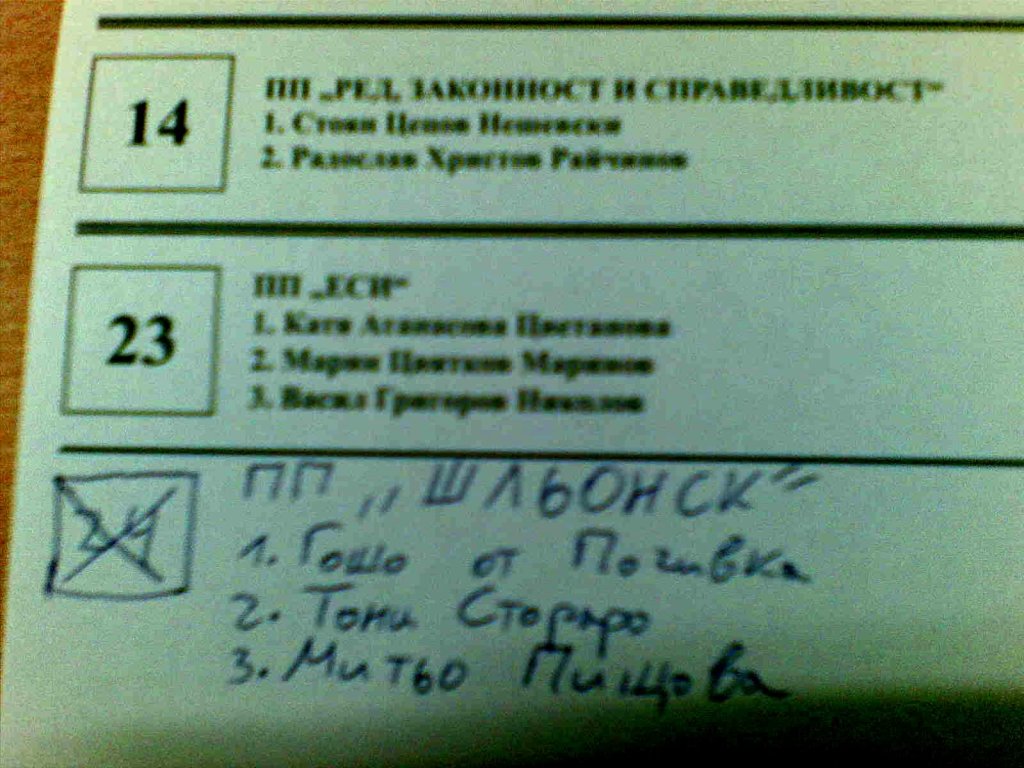 14
ПП „РЕД, ЗАКОННОСТ И СПРАВЕДЛИВОСТ“
1. Стоян Ценов Нешевски
2. Радослав Христов Райчинов
23
ПП „ЕСИ“
1. Катя Атанасова Цветанова
2. Марин Цвятков Маринов
3. Васил Григоров Николов
24
ПП „ШЛЬОНСК“
1. Гошо от Почивка
2. Тони Стораро
3. Митьо Пищова